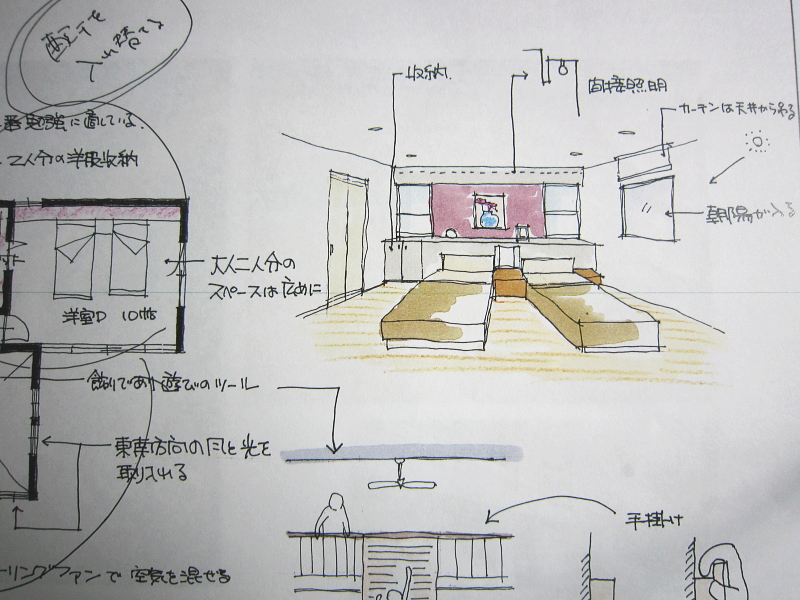 入れ替える
勉強に適している.
二人分の洋服収納
収納.
間接照明
カーテンは天井から吊る
朝陽が入る
大人二人分の
スペースは広めに
洋室D 10帖
飾りであり遊びのツール
東南方向の風と光を
取り入れる
手掛け
ーリングファンで空気を混ぜる